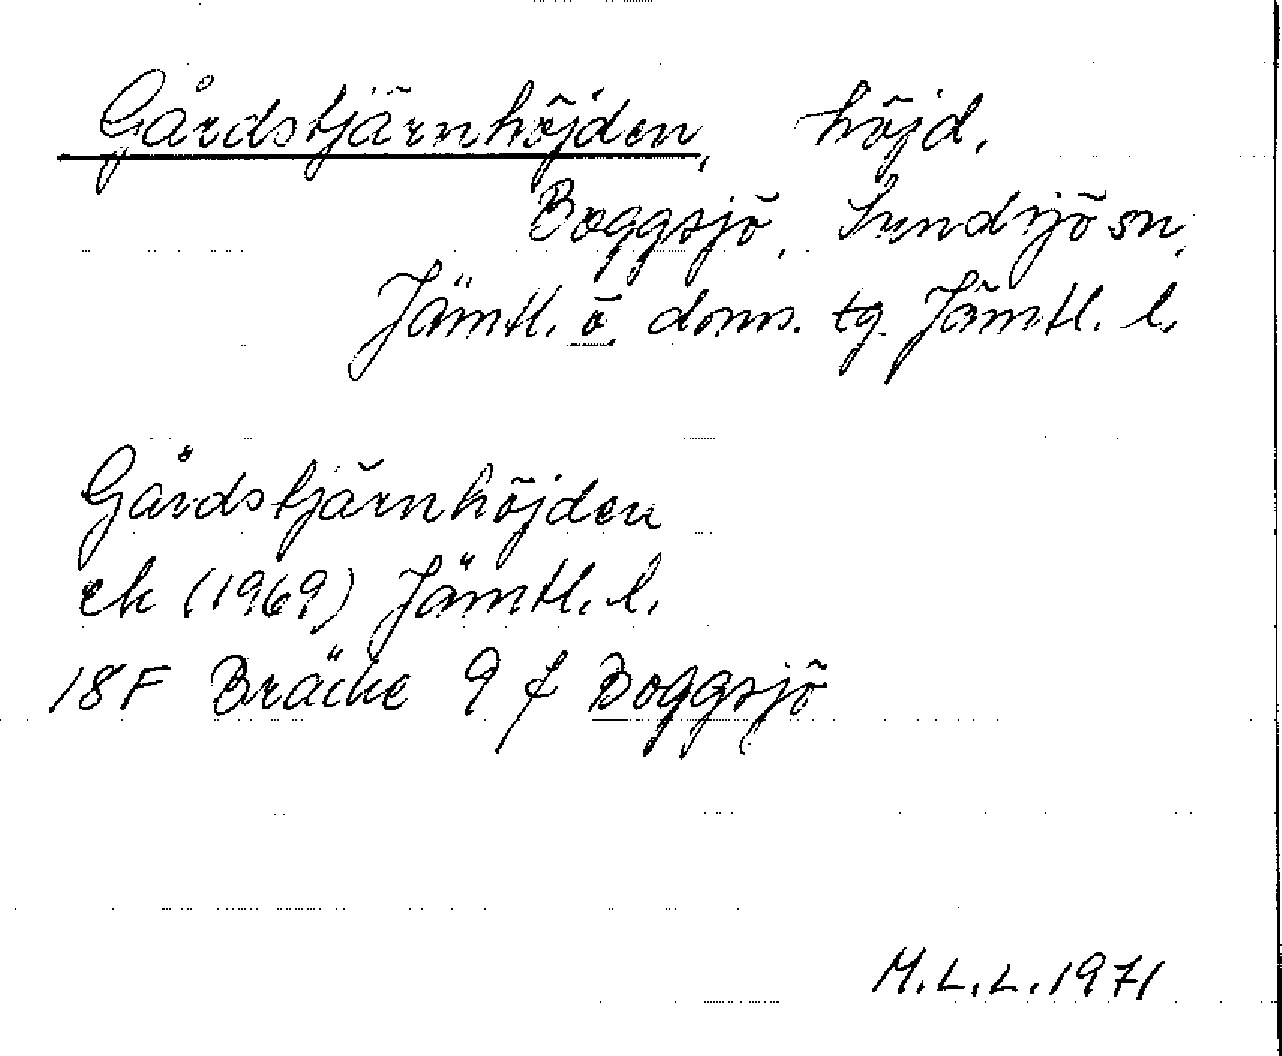 Gårdstjärnhöjden, höjd.
Boggsjö, Sundsjö sn,
Jämtl. ö. doms. tg. Jämtl. l.
Gårdstjärnhöjden
ek (1969) Jämtl. l.
18F Bräcke 9 f Boggsjö
M.L.L. 1971